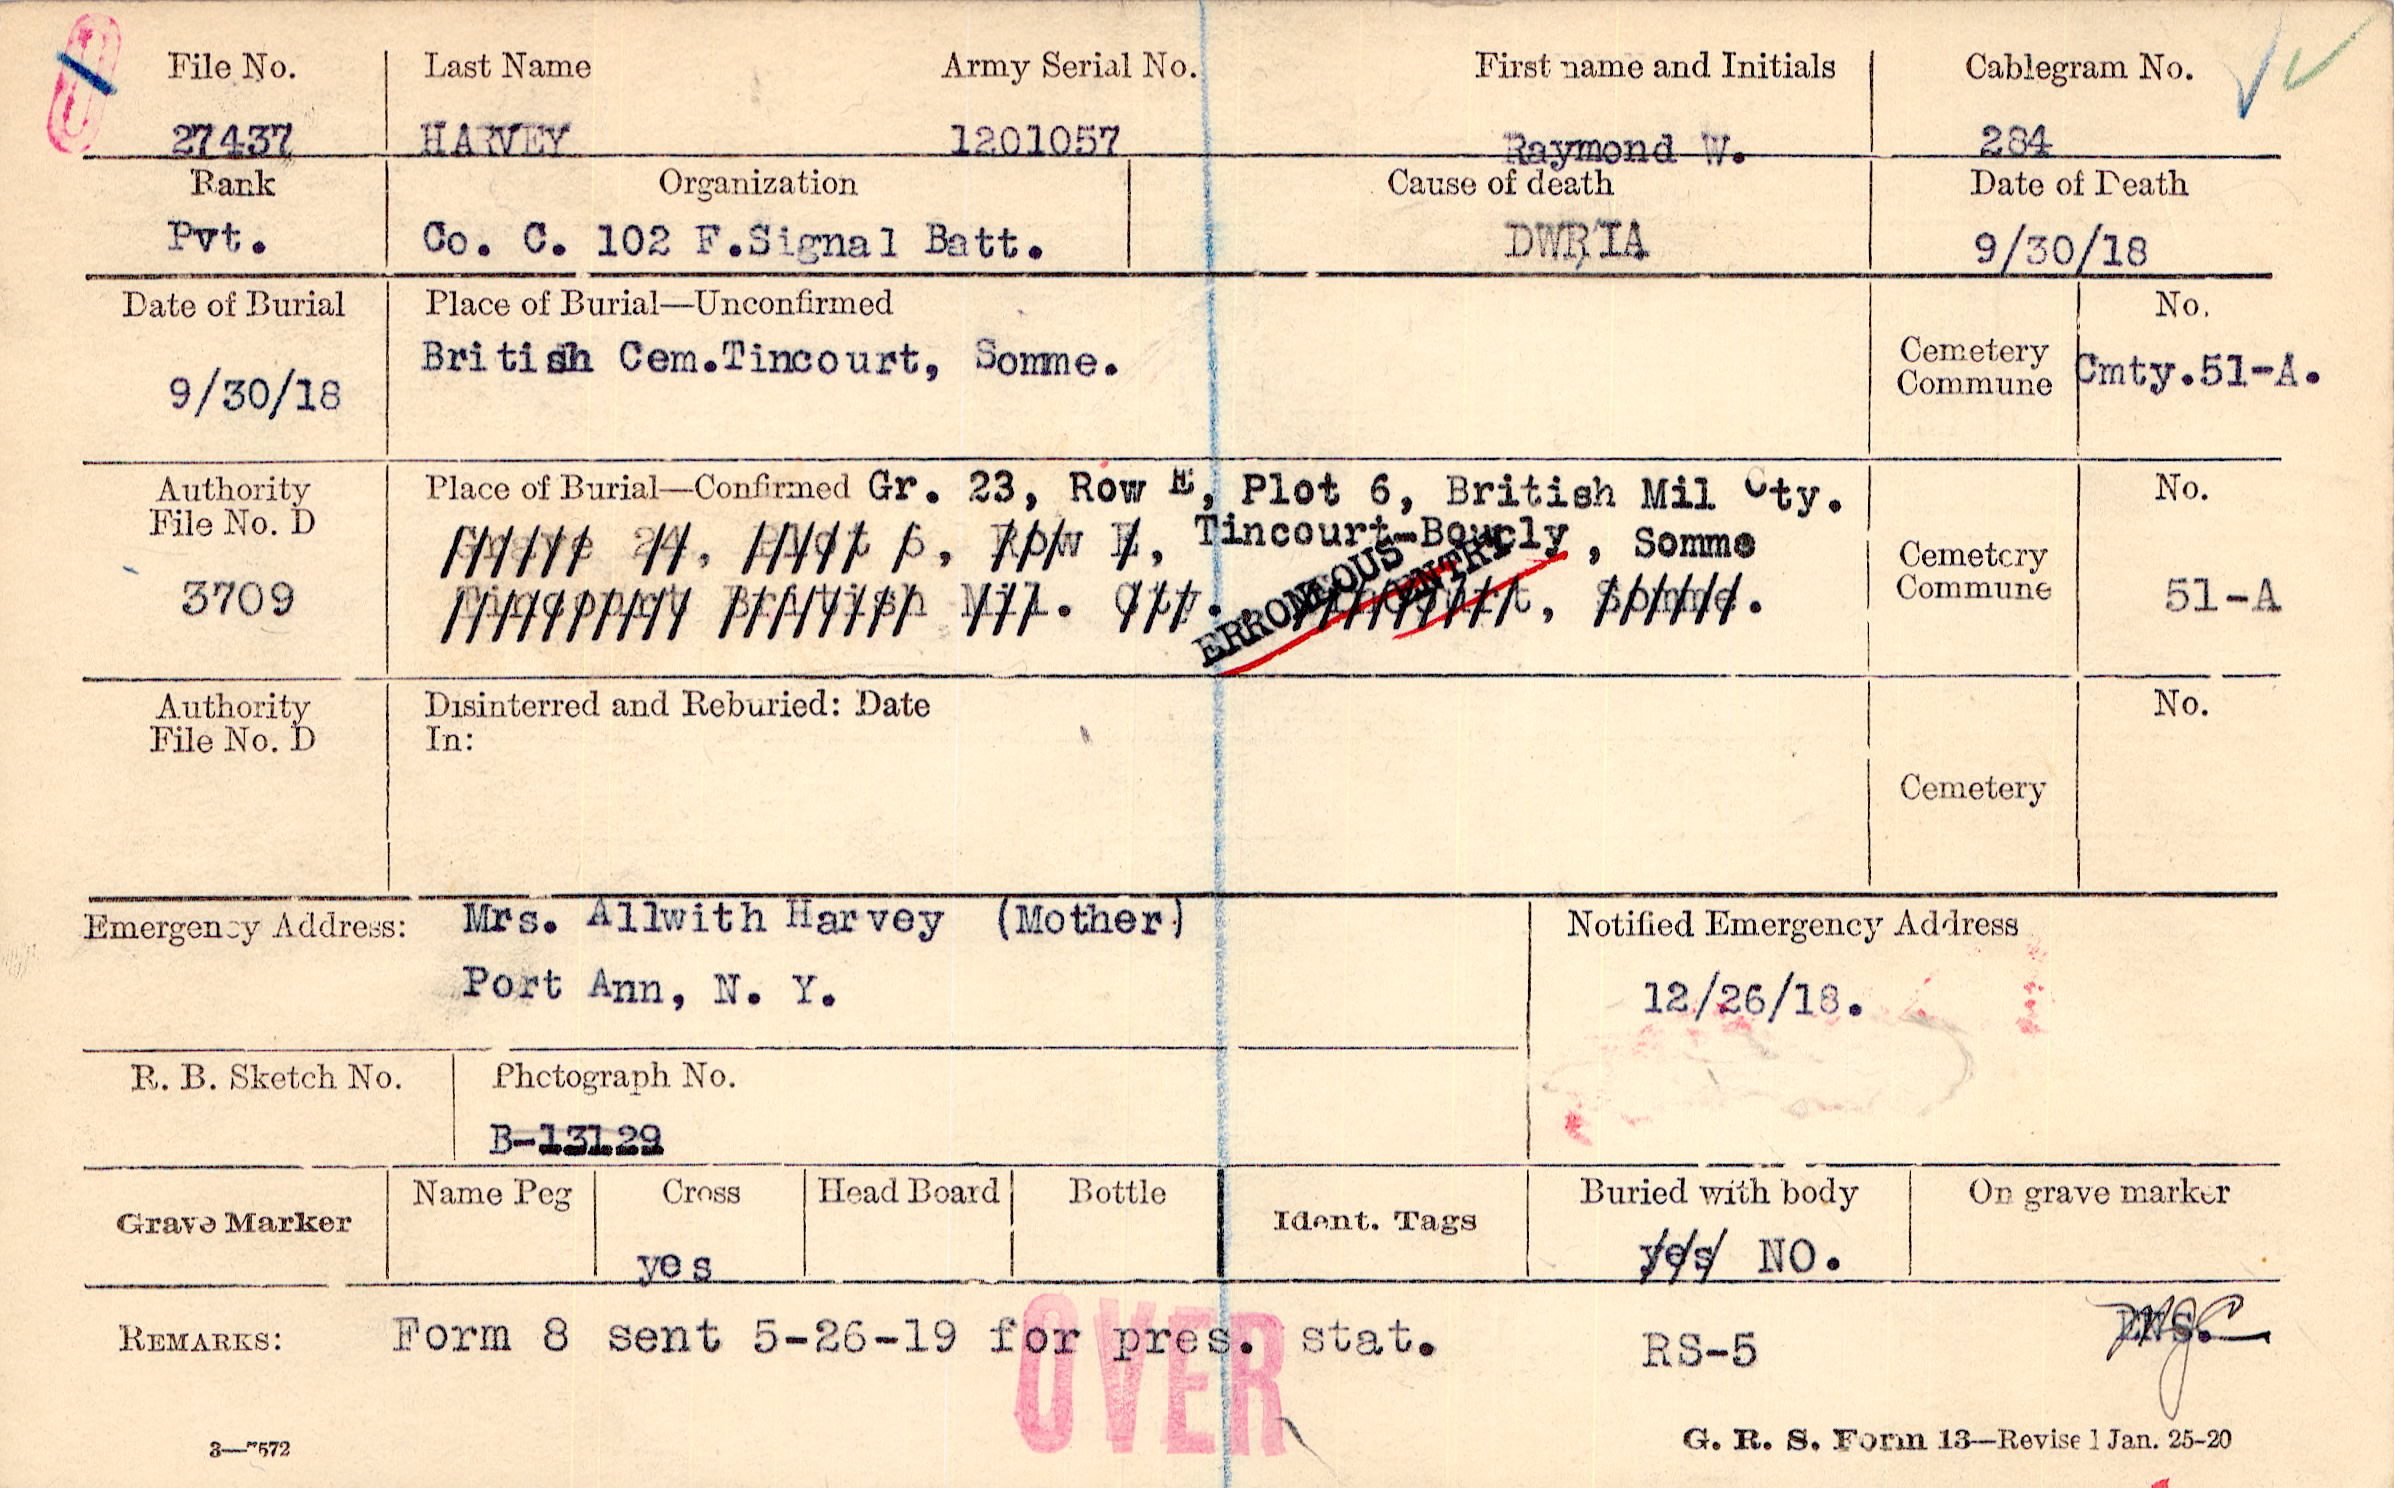 File No. Last Name Army Serial No. First name and Initials Cablegram No.
27437 HARVEY 1201057 Raymond W. 284
Rank Organization Cause of death Date of Death
Pvt. Co. C. 102 F.Signal Batt. DWRIA 9/30/18
Date of Burial Place of Burial—Unconfirmed No.
British Cem.Tincourt, Somme. Cemetery Commune Cmty.51-A.
9/30/18
Authority File No. D Place of Burial—Confirmed Gr. 23, Row E, Plot 6, British Mil Cty. No.
Grave 24, Plot 6, Row E, Tincourt-Boucly, Somme
3709 British Mil. Cty. Tincourt, Somme. Cemetery Commune 51-A
ERRONEOUS ENTRY
Authority File No. D Disinterred and Reburied: Date No.
In:
Cemetery
Emergency Address: Mrs. Allwith Harvey (Mother) Notified Emergency Address
Port Ann, N. Y. 12/26/18.
R. B. Sketch No. Photograph No.
B-13129
Grave Marker Name Peg Cross Head Board Bottle Ident. Tags Buried with body On grave marker
yes yes NO.
REMARKS: Form 8 sent 5-26-19 for pres. stat. RS-5
OVER
3—7572 G. R. S. Form 13—Revised Jan. 25-20